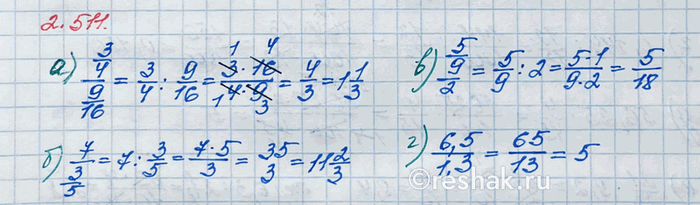 2.511.
а) 3/4 / 9/16 = 3/4 : 9/16 = 3 · 16 / 4 · 9 = 4/3 = 1 1/3
1 4
1 3
б) 7 / 3/5 = 7 : 3/5 = 7 · 5 / 3 = 35/3 = 11 2/3
в) 5/9 / 2 = 5/9 : 2 = 5 · 1 / 9 · 2 = 5/18
г) 6,5 / 1,3 = 65/13 = 5
reshak.ru